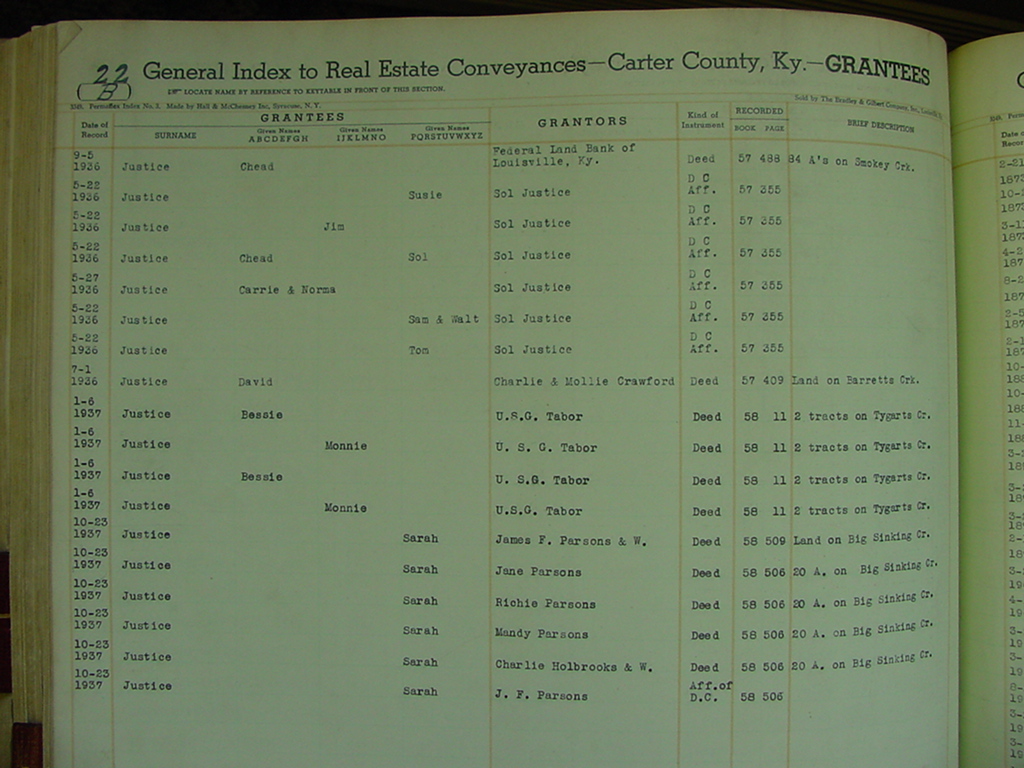 22
(B)
General Index to Real Estate Conveyances—Carter County, Ky.—GRANTEES
LOCATE NAME BY REFERENCE TO KEYTABLE IN FRONT OF THIS SECTION.
Permaflex Index No. 2. Made by Hall & McChesney Inc, Syracuse, N. Y. Sold by The Bradley & Gilbert Company, Inc.
GRANTEES GRANTORS RECORDED
Date of Record SURNAME Given Names ABCDEFGH Given Names IJKLMNO Given Names PQRSTUVWXYZ Kind of Instrument BOOK PAGE BRIEF DESCRIPTION
9-5 Federal Land Bank of
1936 Justice Chead Louisville, Ky. Deed 57 488 84 A's on Smokey Crk.
5-22 D C
1936 Justice Susie Sol Justice Aff. 57 355
5-22 D C
1936 Justice Jim Sol Justice Aff. 57 355
5-22 D C
1936 Justice Chead Sol Sol Justice Aff. 57 355
5-27 D C
1936 Justice Carrie & Norma Sol Justice Aff. 57 355
5-22 D C
1936 Justice Sam & Walt Sol Justice Aff. 57 355
5-22 D C
1936 Justice Tom Sol Justice Aff. 57 355
7-1
1936 Justice David Charlie & Mollie Crawford Deed 57 409 Land on Barretts Crk.
1-6
1937 Justice Bessie U.S.G. Tabor Deed 58 11 2 tracts on Tygarts Cr.
1-6
1937 Justice Monnie U. S. G. Tabor Deed 58 11 2 tracts on Tygarts Cr.
1-6
1937 Justice Bessie U. S.G. Tabor Deed 58 11 2 tracts on Tygarts Cr.
1-6
1937 Justice Monnie U.S.G. Tabor Deed 58 11 2 tracts on Tygarts Cr.
10-23
1937 Justice Sarah James F. Parsons & W. Deed 58 509 Land on Big Sinking Cr.
10-23
1937 Justice Sarah Jane Parsons Deed 58 506 20 A. on Big Sinking Cr.
10-23
1937 Justice Sarah Richie Parsons Deed 58 506 20 A. on Big Sinking Cr.
10-23
1937 Justice Sarah Mandy Parsons Deed 58 506 20 A. on Big Sinking Cr.
10-23
1937 Justice Sarah Charlie Holbrooks & W. Deed 58 506 20 A. on Big Sinking Cr.
10-23 Aff.of
1937 Justice Sarah J. F. Parsons D.C. 58 506